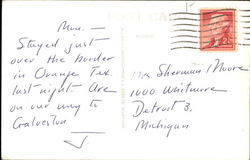 Mon. —
Stayed just
over the border
in Orange Tex.
last night. Are
on our way to
Galveston
J
POST CARD
Mrs Sherman Moore
1000 Whitmore
Detroit 3,
Michigan